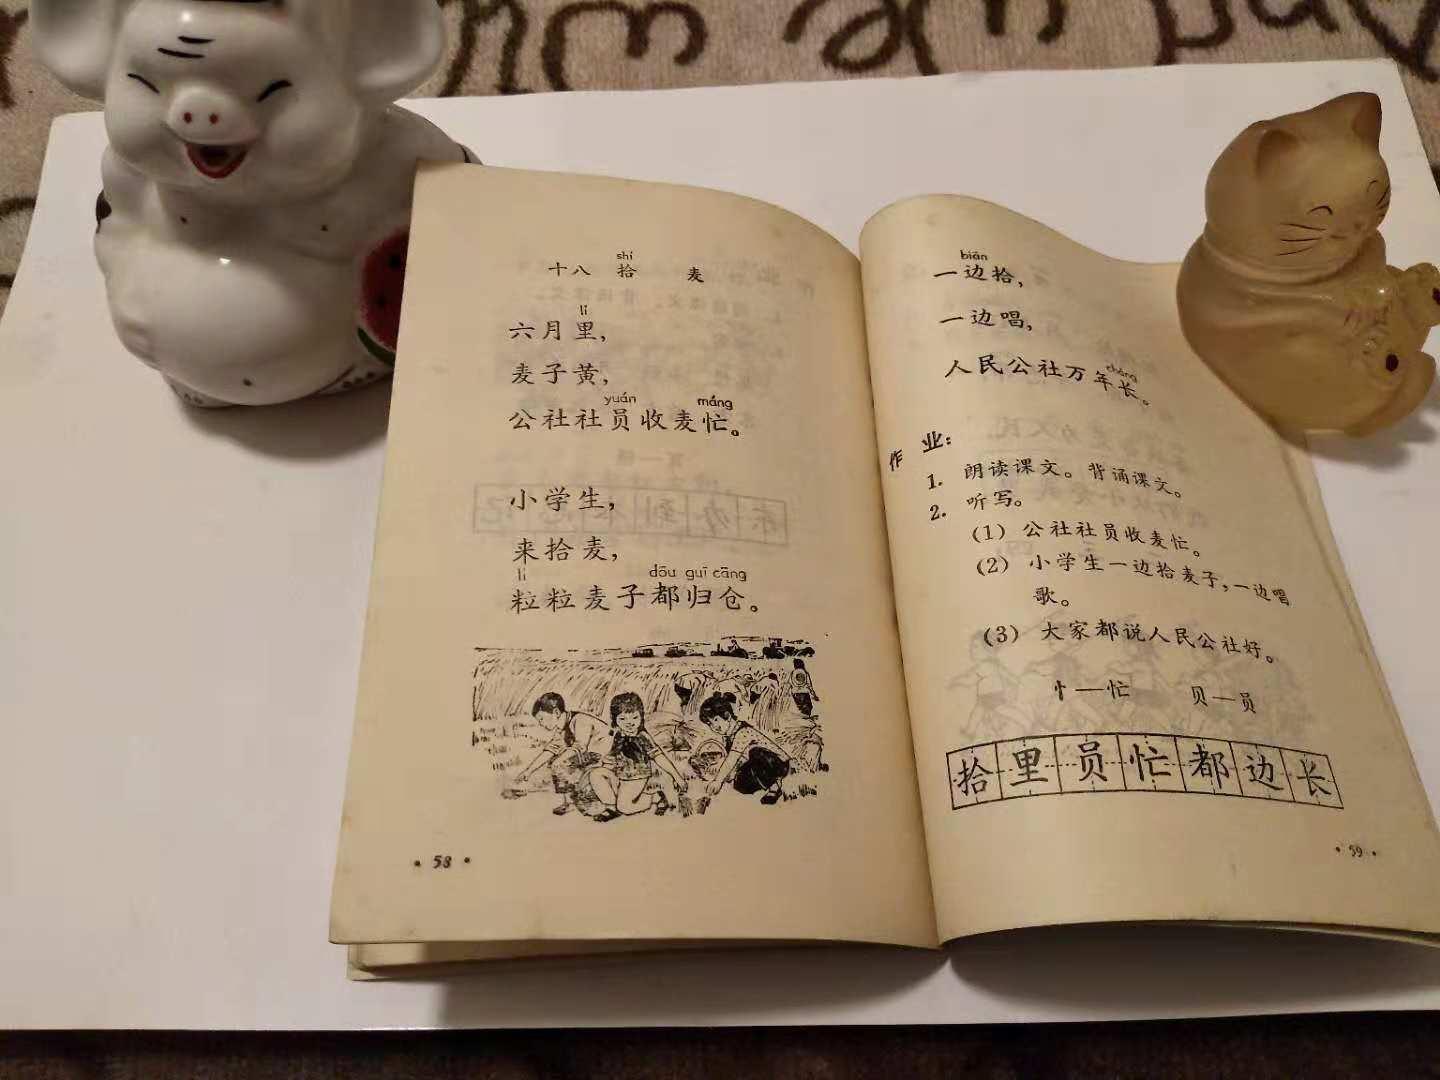 shí
十八 拾 麦
lǐ
六月里，
麦子黄，
yuán máng
公社社员收麦忙。
小学生，
来拾麦，
lì dōu guī cāng
粒粒麦子都归仓。
·58·
biān
一边拾，
一边唱，
cháng
人民公社万年长。
作业：
1. 朗读课文。背诵课文。
2. 听写。
(1) 公社社员收麦忙。
(2) 小学生一边拾麦子，一边唱
歌。
(3) 大家都说人民公社好。
忄—忙 贝—员
拾里员忙都边长
·59·